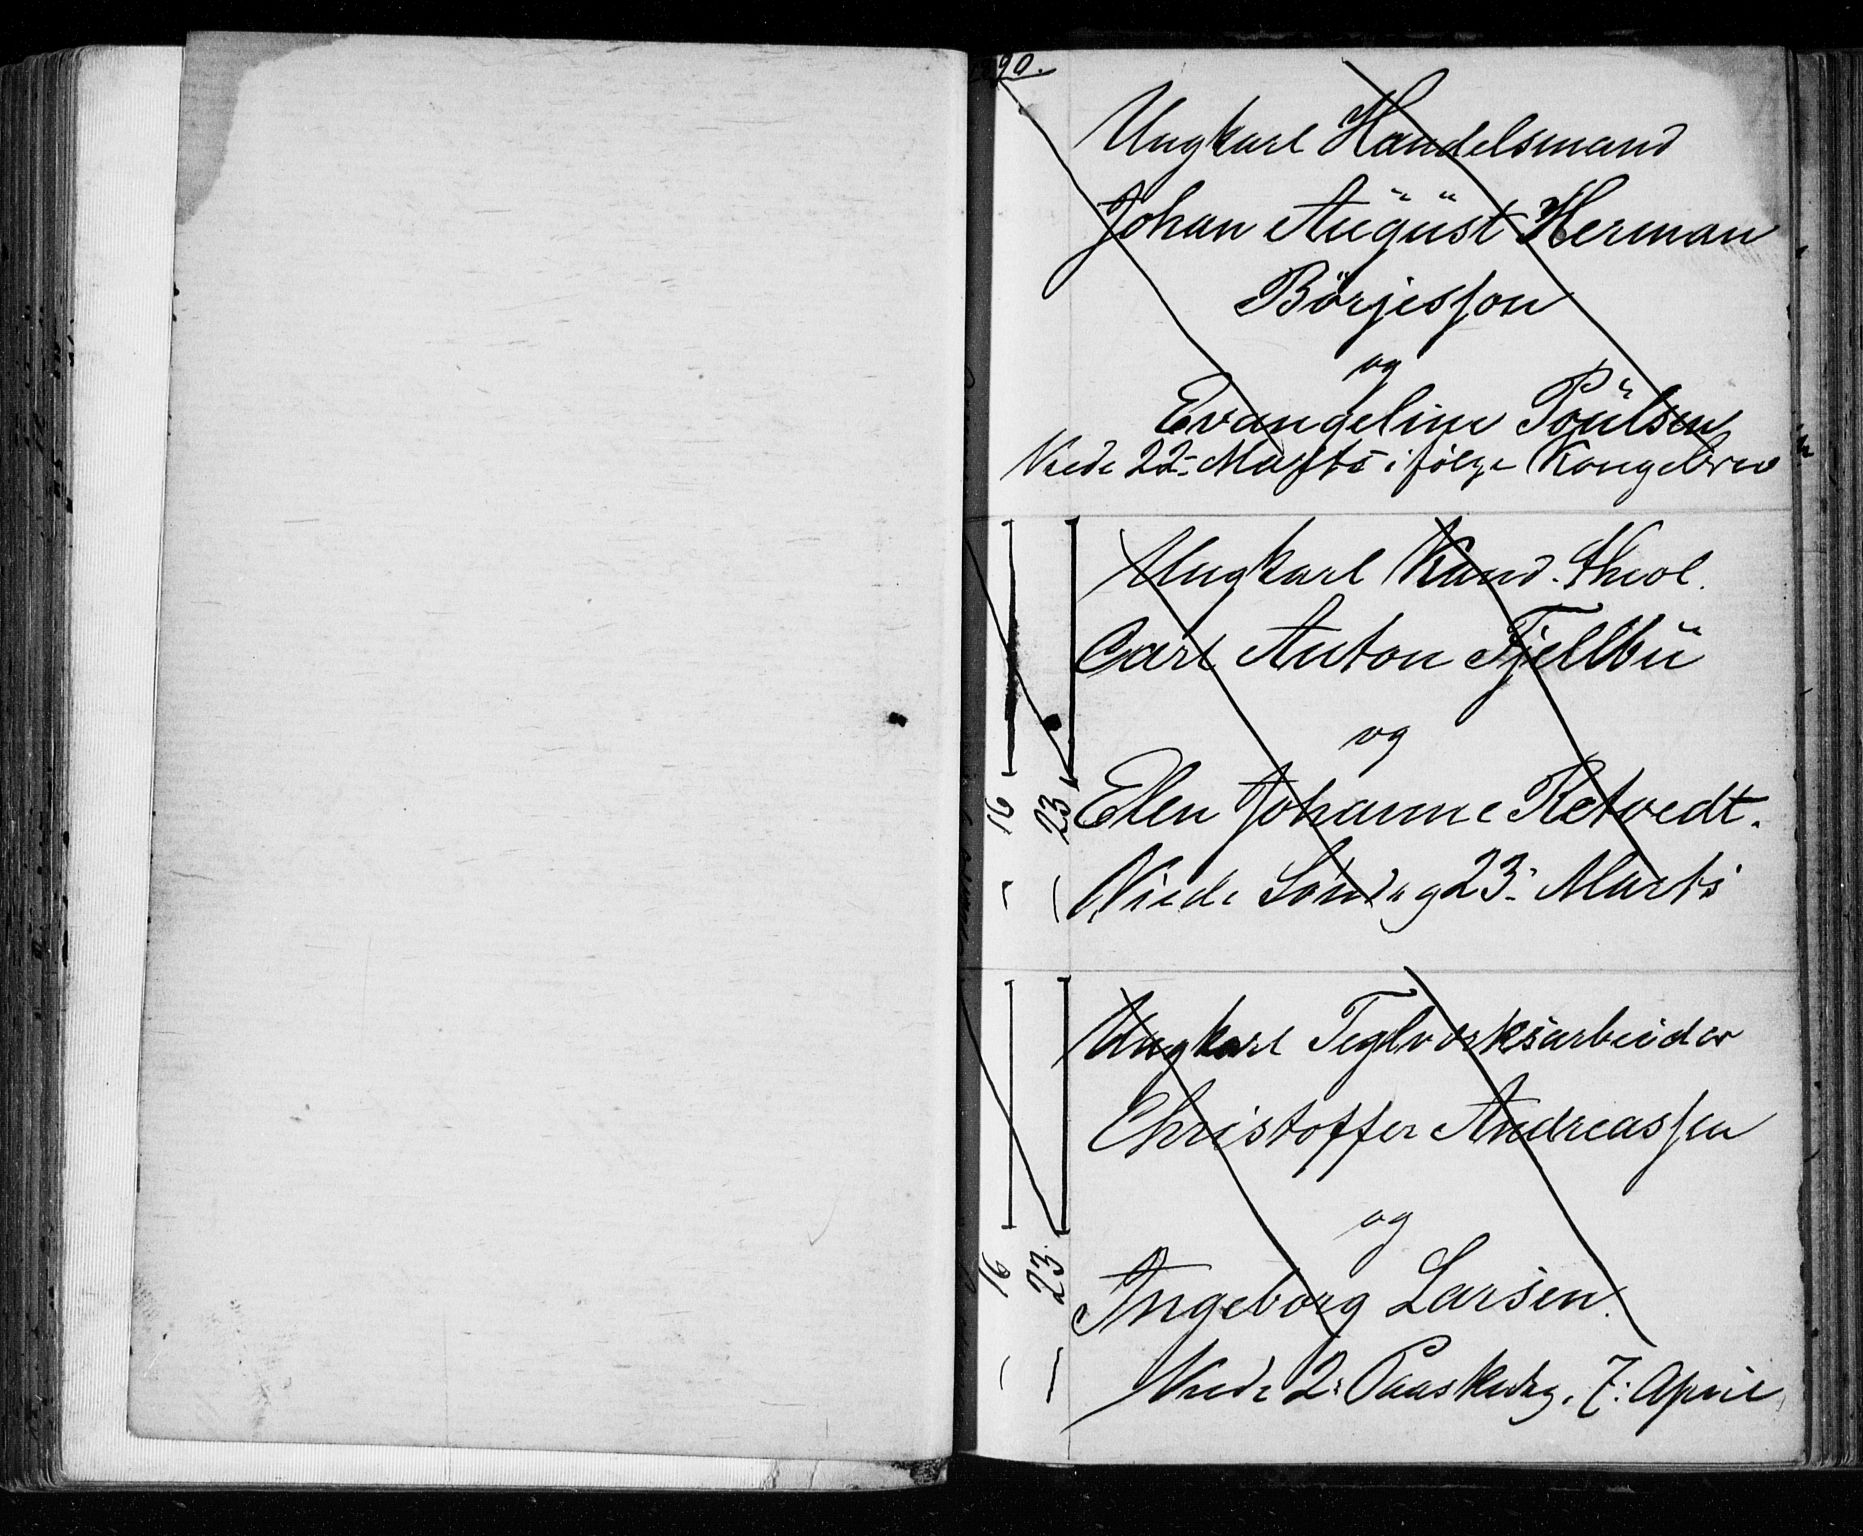 90.
Ungkarl Handelsmand
Johan August Herman
Börjesson
og
Evangeline Poulsen
Viede 22- Marts ifølge Kongebrev
Ungkarl Kand. theol.
Carl Anton Fjellbu
og
Elen Johanne Retvedt.
Viede Søndag 23: Marts
16
23
Ungkarl Teglverksarbeider
Christoffer Andreassen
og
Ingeborg Larsen.
Viede 2: Paaskedag, 7: April
16
23